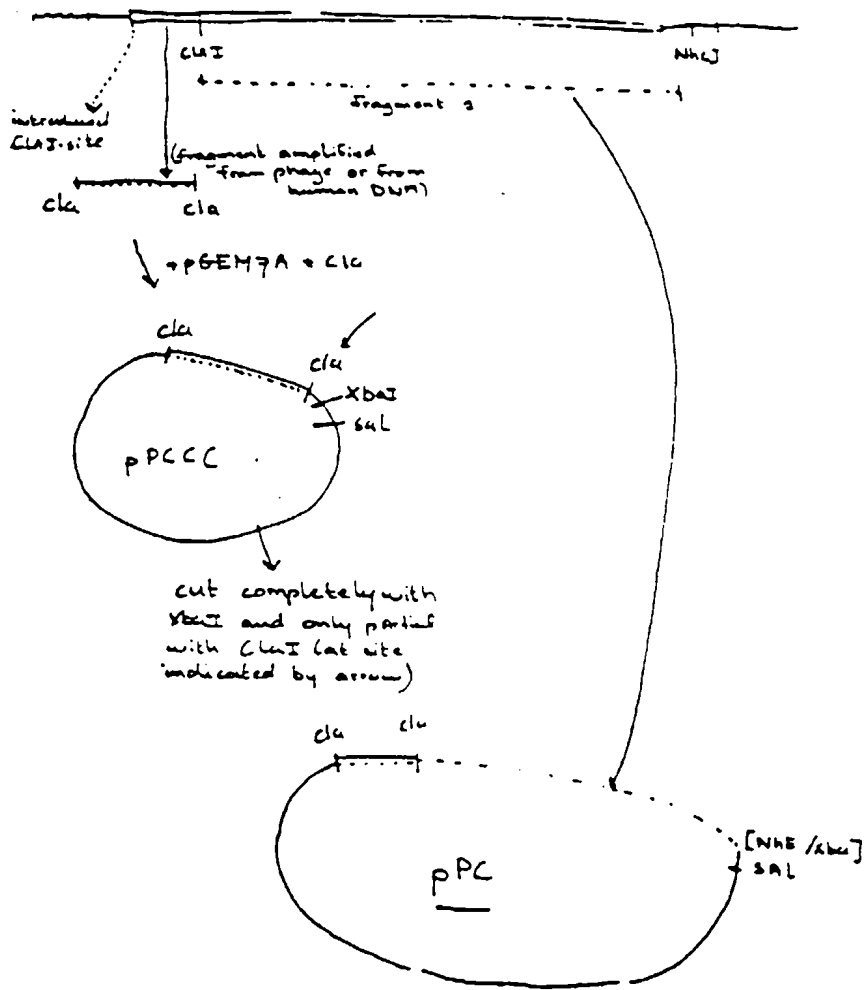 ClaI
NheI
fragment 1
introduced
ClaI-site
(fragment amplified
from phage or from
human DNA)
cla
cla
+pGEM7A + Cla
cla
cla
XbaI
sal
pPCCC
cut completely with
XbaI and only partial
with ClaI (at site
indicated by arrow)
cla
cla
[NhE/xba]
SAL
pPC